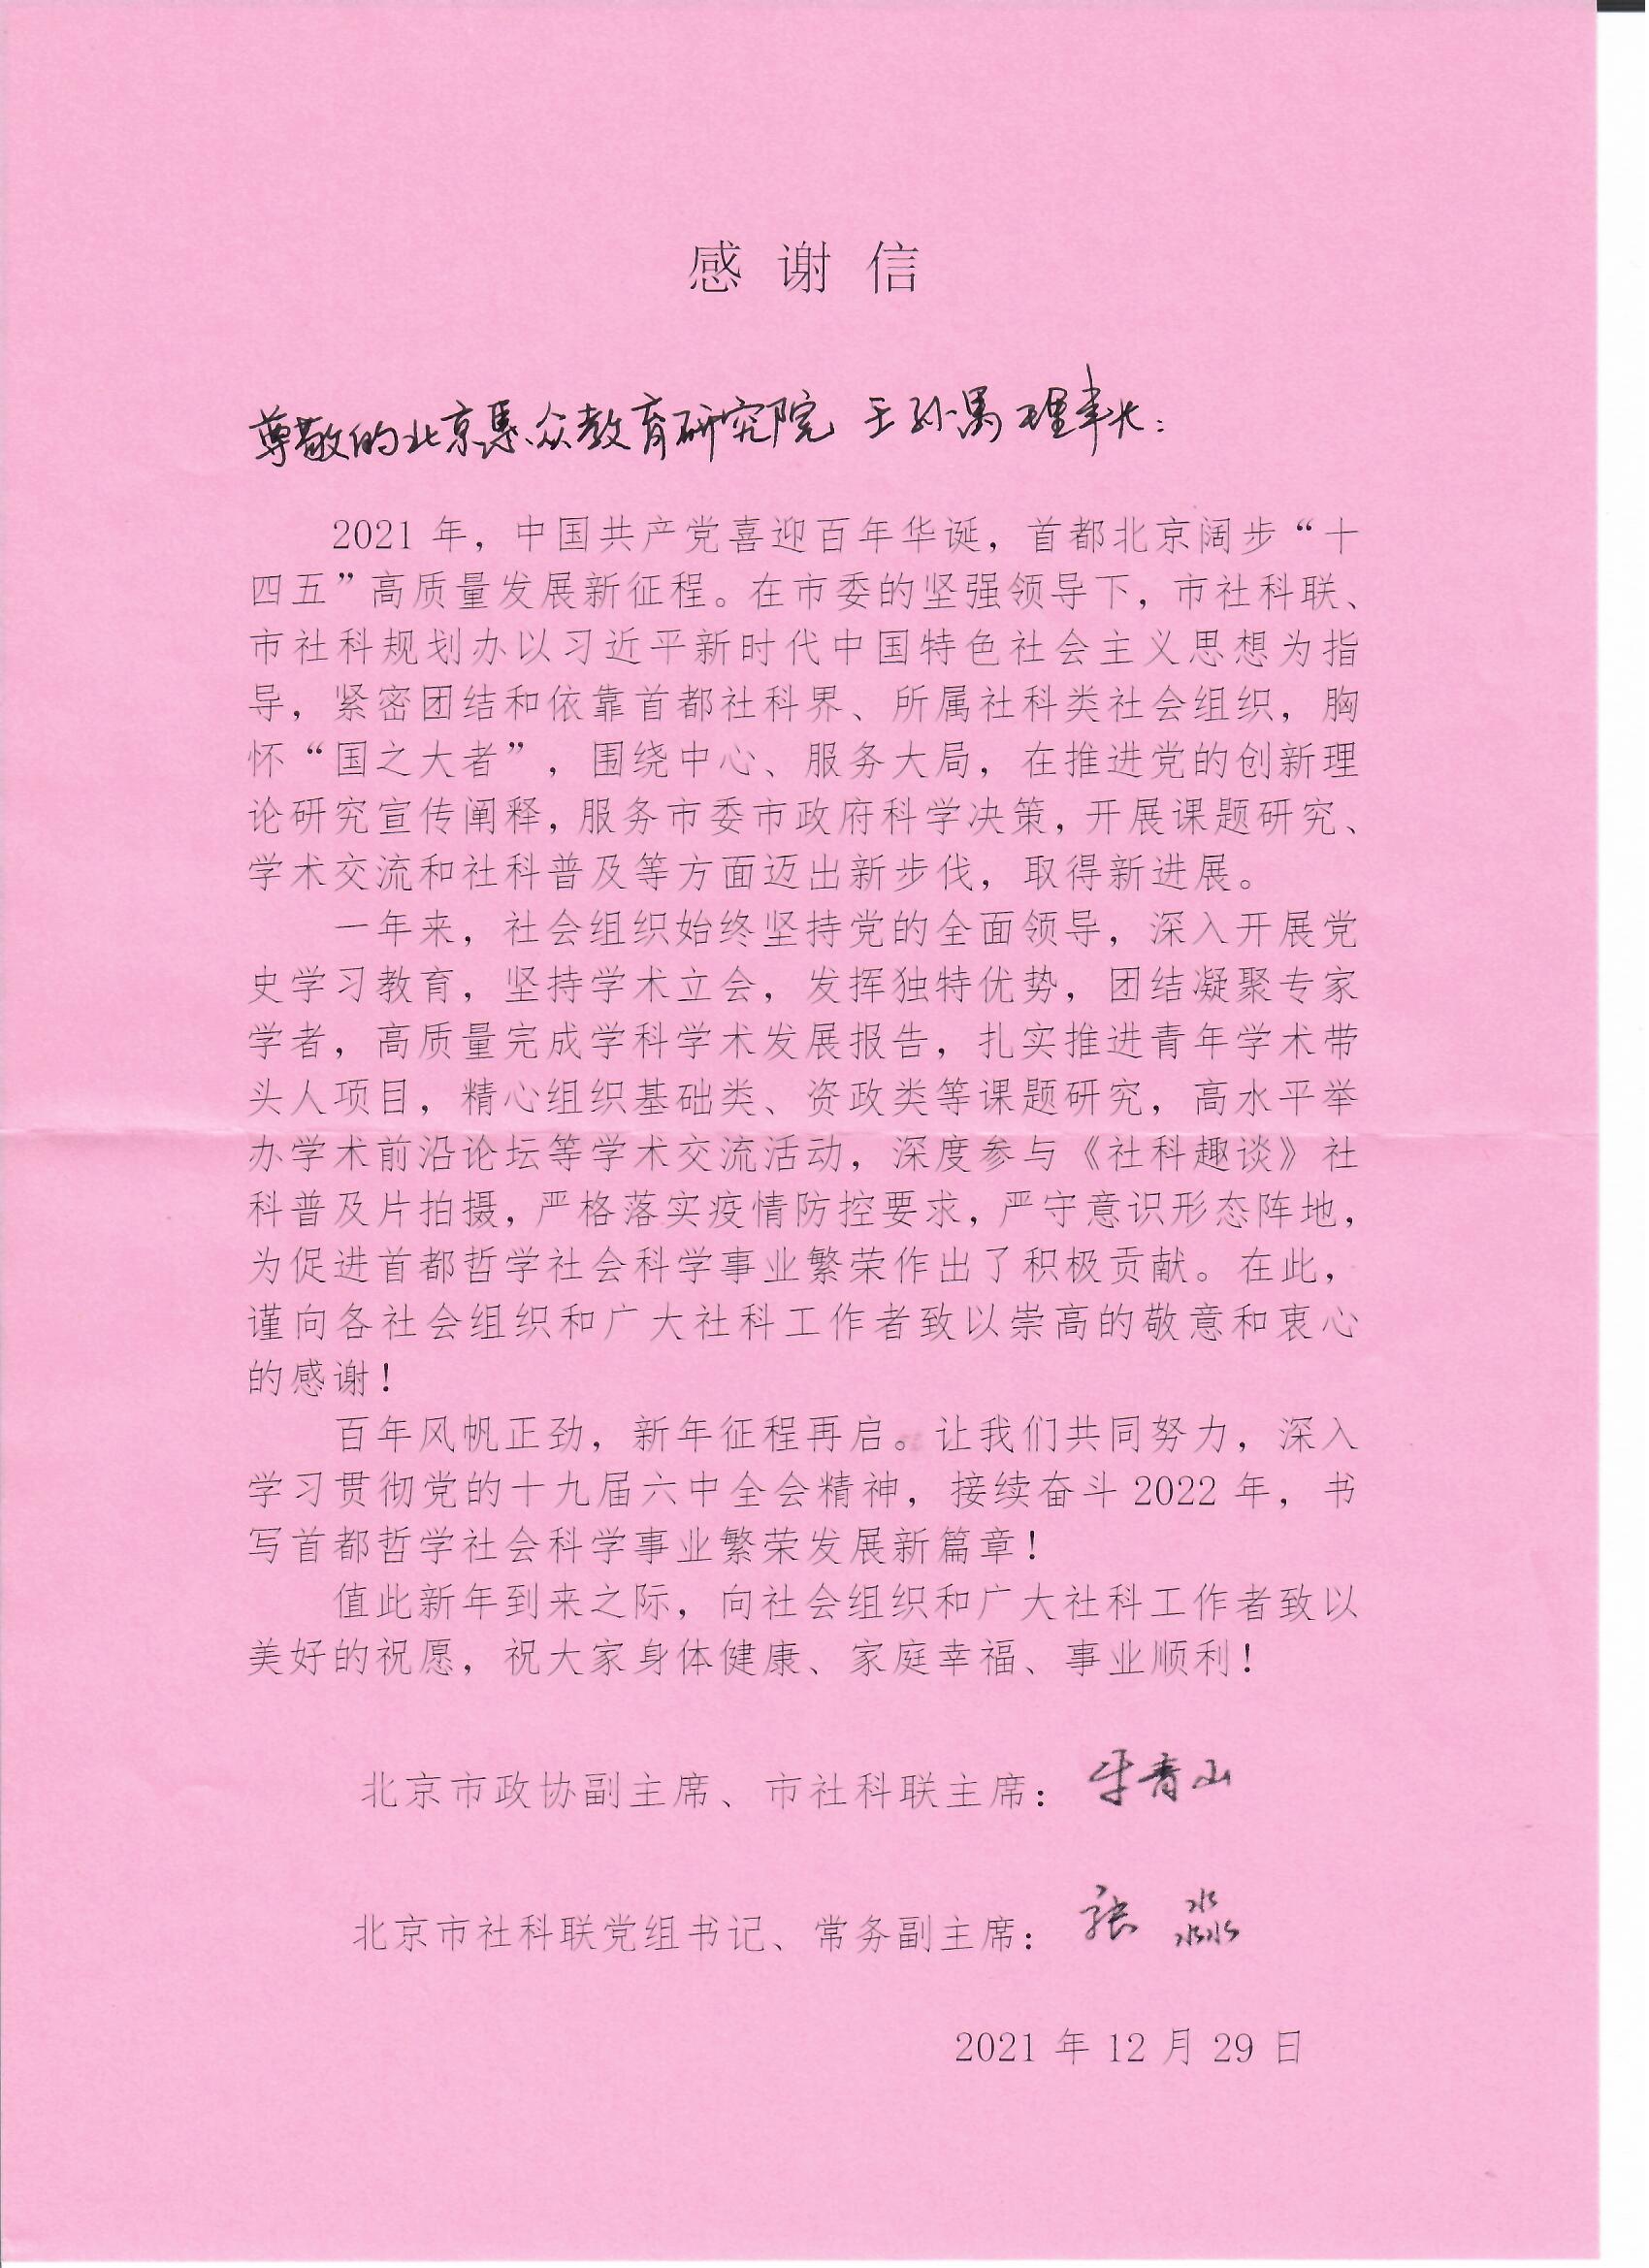 感谢信
尊敬的北京慧众教育研究院 王孙禺理事长：
2021 年，中国共产党喜迎百年华诞，首都北京阔步“十
四五”高质量发展新征程。在市委的坚强领导下，市社科联、
市社科规划办以习近平新时代中国特色社会主义思想为指
导，紧密团结和依靠首都社科界、所属社科类社会组织，胸
怀“国之大者”，围绕中心、服务大局，在推进党的创新理
论研究宣传阐释，服务市委市政府科学决策，开展课题研究、
学术交流和社科普及等方面迈出新步伐，取得新进展。
一年来，社会组织始终坚持党的全面领导，深入开展党
史学习教育，坚持学术立会，发挥独特优势，团结凝聚专家
学者，高质量完成学科学术发展报告，扎实推进青年学术带
头人项目，精心组织基础类、资政类等课题研究，高水平举
办学术前沿论坛等学术交流活动，深度参与《社科趣谈》社
科普及片拍摄，严格落实疫情防控要求，严守意识形态阵地，
为促进首都哲学社会科学事业繁荣作出了积极贡献。在此，
谨向各社会组织和广大社科工作者致以崇高的敬意和衷心
的感谢！
百年风帆正劲，新年征程再启。让我们共同努力，深入
学习贯彻党的十九届六中全会精神，接续奋斗 2022 年，书
写首都哲学社会科学事业繁荣发展新篇章！
值此新年到来之际，向社会组织和广大社科工作者致以
美好的祝愿，祝大家身体健康、家庭幸福、事业顺利！
北京市政协副主席、市社科联主席：牛青山
北京市社科联党组书记、常务副主席：张淼
2021 年 12 月 29 日